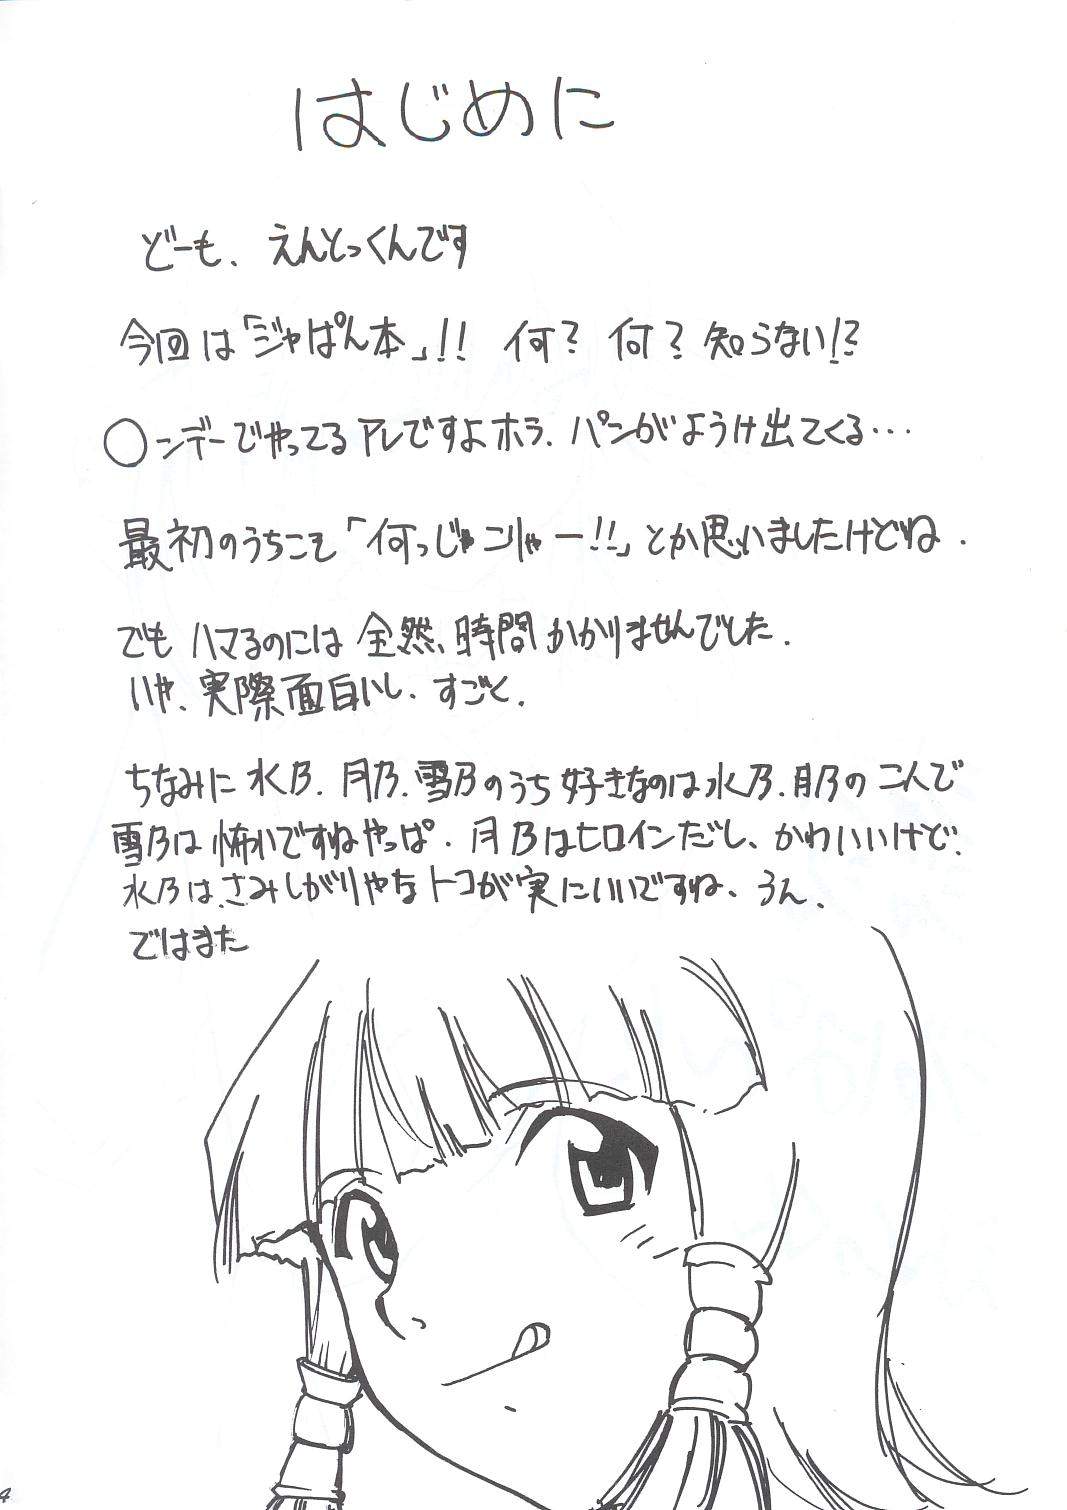 はじめに
どーも、えんとっくんです
今回は「ジャぱん本」!! 何？何？知らない!?
〇ンデーでやってるアレですよホラ、パンがようけ出てくる…
最初のうちこそ「何っじゃこりゃー!!」とか思いましたけどね.
でもハマるのには全然、時間かかりませんでした.
いや、実際面白いし、すごく.
ちなみに水乃.月乃.雪乃のうち好きなのは水乃.月乃の二人で
雪乃は怖いですねやっぱ.月乃はヒロインだし、かわいいけど.
水乃は.さみしがりやなトコが実にいいですね、うん.
ではまた
4